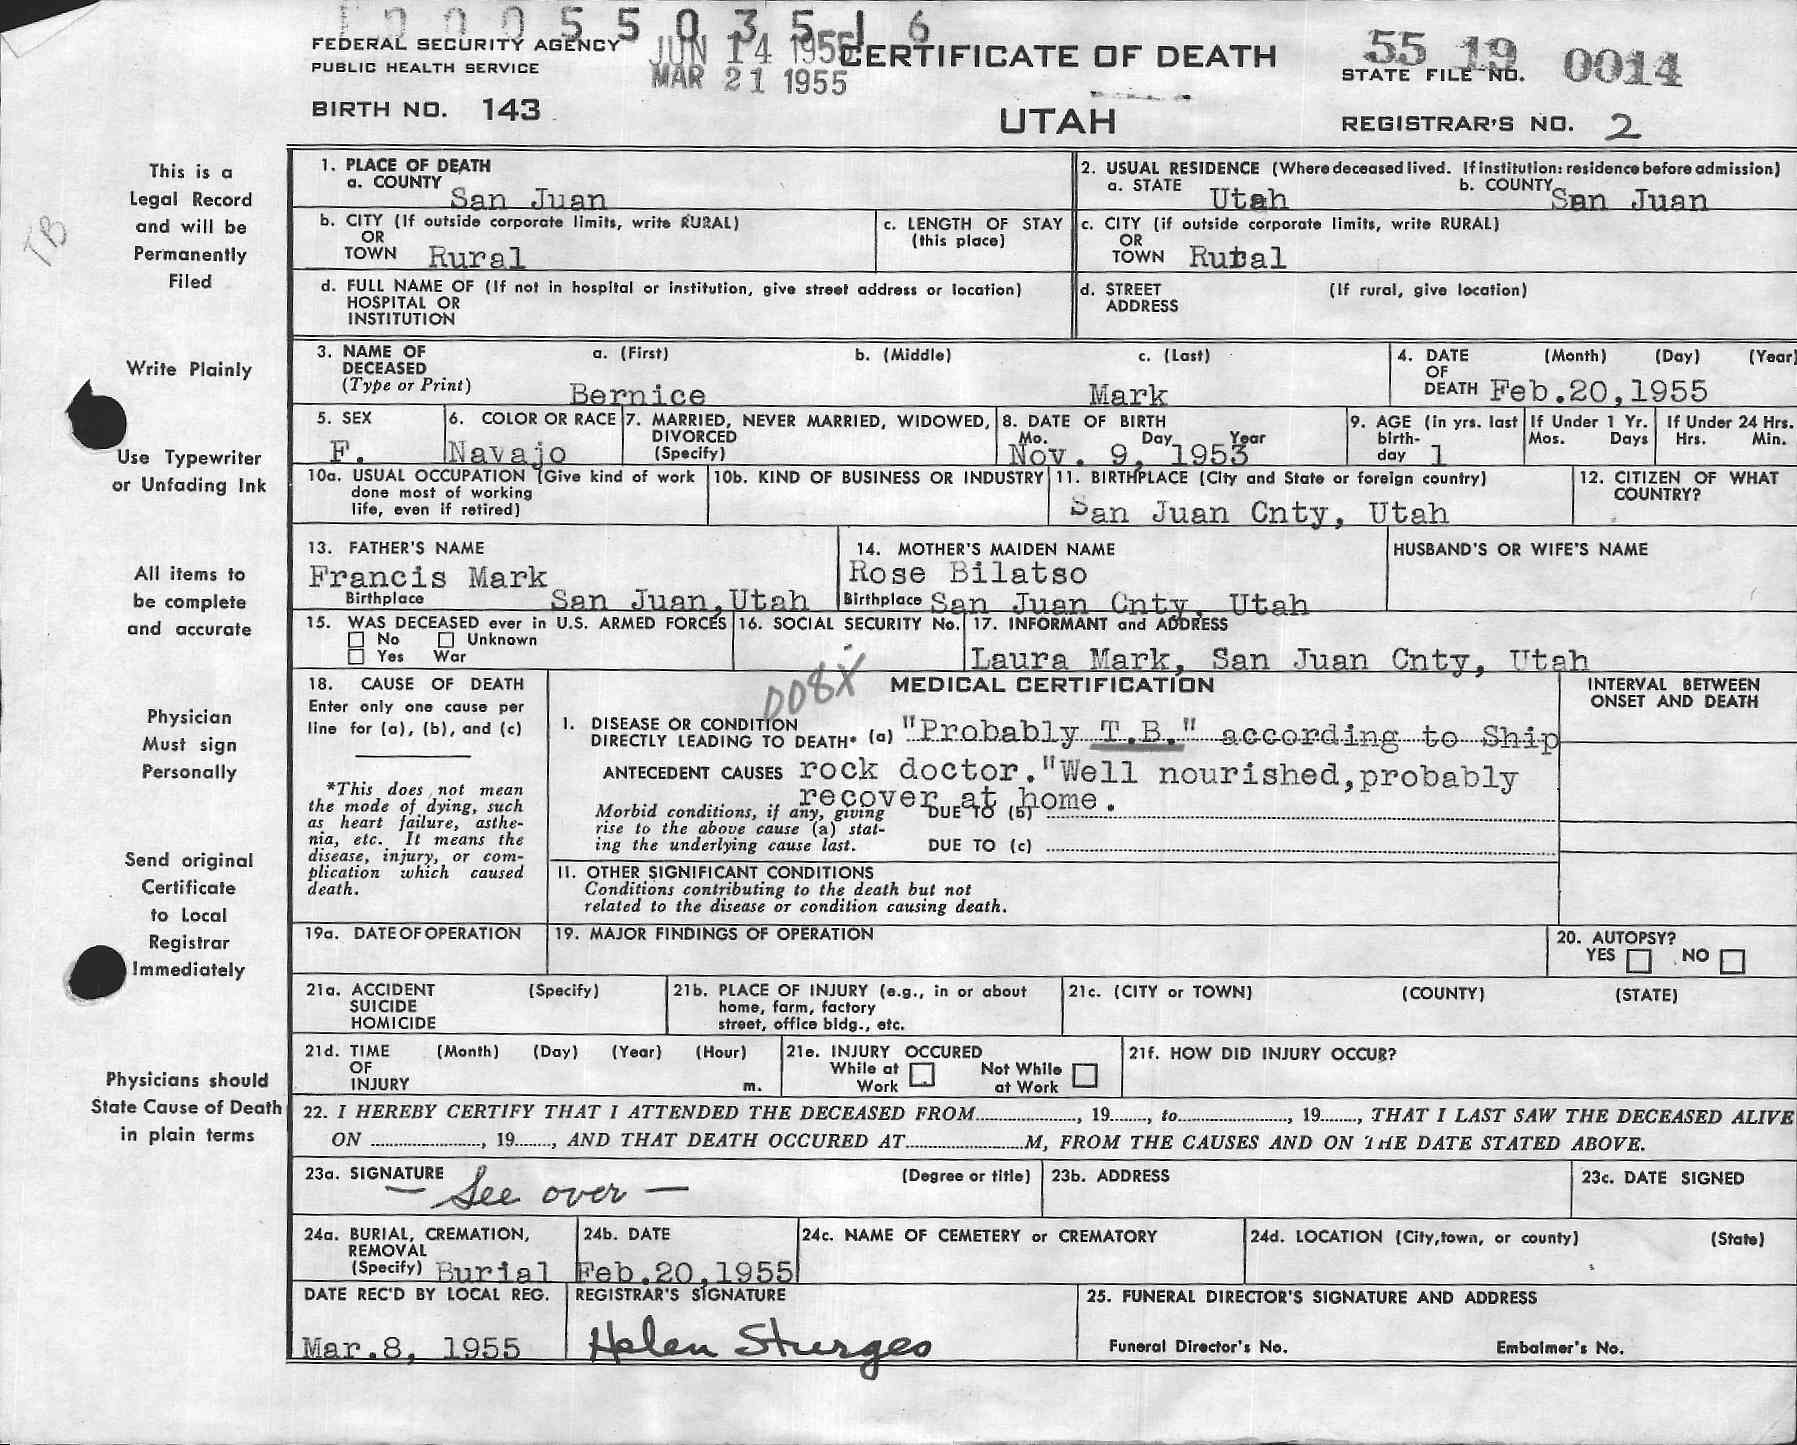 1000550 35 16
FEDERAL SECURITY AGENCY
PUBLIC HEALTH SERVICE
JUN 14 1955
MAR 21 1955
CERTIFICATE OF DEATH
UTAH
55 19 0014
STATE FILE NO.
BIRTH NO. 143
REGISTRAR'S NO. 2
This is a
Legal Record
and will be
Permanently
Filed
TB
Write Plainly
Use Typewriter
or Unfading Ink
All items to
be complete
and accurate
Physician
Must sign
Personally
Send original
Certificate
to Local
Registrar
Immediately
Physicians should
State Cause of Death
in plain terms
1. PLACE OF DEATH
a. COUNTY San Juan
2. USUAL RESIDENCE (Where deceased lived. If institution: residence before admission)
a. STATE Utah b. COUNTY San Juan
b. CITY (If outside corporate limits, write RURAL)
OR
TOWN Rural
c. LENGTH OF STAY
(this place)
c. CITY (if outside corporate limits, write RURAL)
OR
TOWN Rural
d. FULL NAME OF (If not in hospital or institution, give street address or location)
HOSPITAL OR
INSTITUTION
d. STREET (If rural, give location)
ADDRESS
3. NAME OF a. (First) b. (Middle) c. (Last)
DECEASED
(Type or Print) Bernice Mark
4. DATE (Month) (Day) (Year)
OF
DEATH Feb.20,1955
5. SEX
F.
6. COLOR OR RACE
Navajo
7. MARRIED, NEVER MARRIED, WIDOWED,
DIVORCED
(Specify)
8. DATE OF BIRTH
Mo. Day Year
Nov. 9, 1953
9. AGE (in yrs. last
birth-
day 1
If Under 1 Yr.
Mos. Days
If Under 24 Hrs.
Hrs. Min.
10a. USUAL OCCUPATION (Give kind of work
done most of working
life, even if retired)
10b. KIND OF BUSINESS OR INDUSTRY
11. BIRTHPLACE (City and State or foreign country)
San Juan Cnty, Utah
12. CITIZEN OF WHAT
COUNTRY?
13. FATHER'S NAME
Francis Mark
Birthplace San Juan,Utah
14. MOTHER'S MAIDEN NAME
Rose Bilatso
Birthplace San Juan Cnty, Utah
HUSBAND'S OR WIFE'S NAME
15. WAS DECEASED ever in U.S. ARMED FORCES
No Unknown
Yes War
16. SOCIAL SECURITY No.
17. INFORMANT and ADDRESS
Laura Mark, San Juan Cnty, Utah
18. CAUSE OF DEATH
Enter only one cause per
line for (a), (b), and (c)
*This does not mean
the mode of dying, such
as heart failure, asthe-
nia, etc. It means the
disease, injury, or com-
plication which caused
death.
008X
MEDICAL CERTIFICATION
INTERVAL BETWEEN
ONSET AND DEATH
I. DISEASE OR CONDITION
DIRECTLY LEADING TO DEATH* (a) "Probably T.B." according to Ship
ANTECEDENT CAUSES rock doctor."Well nourished,probably
recover at home.
Morbid conditions, if any, giving DUE TO (b)
rise to the above cause (a) stat-
ing the underlying cause last. DUE TO (c)
II. OTHER SIGNIFICANT CONDITIONS
Conditions contributing to the death but not
related to the disease or condition causing death.
19a. DATE OF OPERATION
19. MAJOR FINDINGS OF OPERATION
20. AUTOPSY?
YES NO
21a. ACCIDENT (Specify)
SUICIDE
HOMICIDE
21b. PLACE OF INJURY (e.g., in or about
home, farm, factory
street, office bldg., etc.
21c. (CITY or TOWN) (COUNTY) (STATE)
21d. TIME (Month) (Day) (Year) (Hour)
OF
INJURY m.
21e. INJURY OCCURED
While at Not While
Work at Work
21f. HOW DID INJURY OCCUR?
22. I HEREBY CERTIFY THAT I ATTENDED THE DECEASED FROM, 19, to, 19, THAT I LAST SAW THE DECEASED ALIVE
ON, 19, AND THAT DEATH OCCURED AT M, FROM THE CAUSES AND ON THE DATE STATED ABOVE.
23a. SIGNATURE (Degree or title)
— See over —
23b. ADDRESS
23c. DATE SIGNED
24a. BURIAL, CREMATION,
REMOVAL
(Specify) Burial
24b. DATE
Feb.20,1955
24c. NAME OF CEMETERY or CREMATORY
24d. LOCATION (City,town, or county) (State)
DATE REC'D BY LOCAL REG.
Mar.8, 1955
REGISTRAR'S SIGNATURE
Helen Sturges
25. FUNERAL DIRECTOR'S SIGNATURE AND ADDRESS
Funeral Director's No. Embalmer's No.